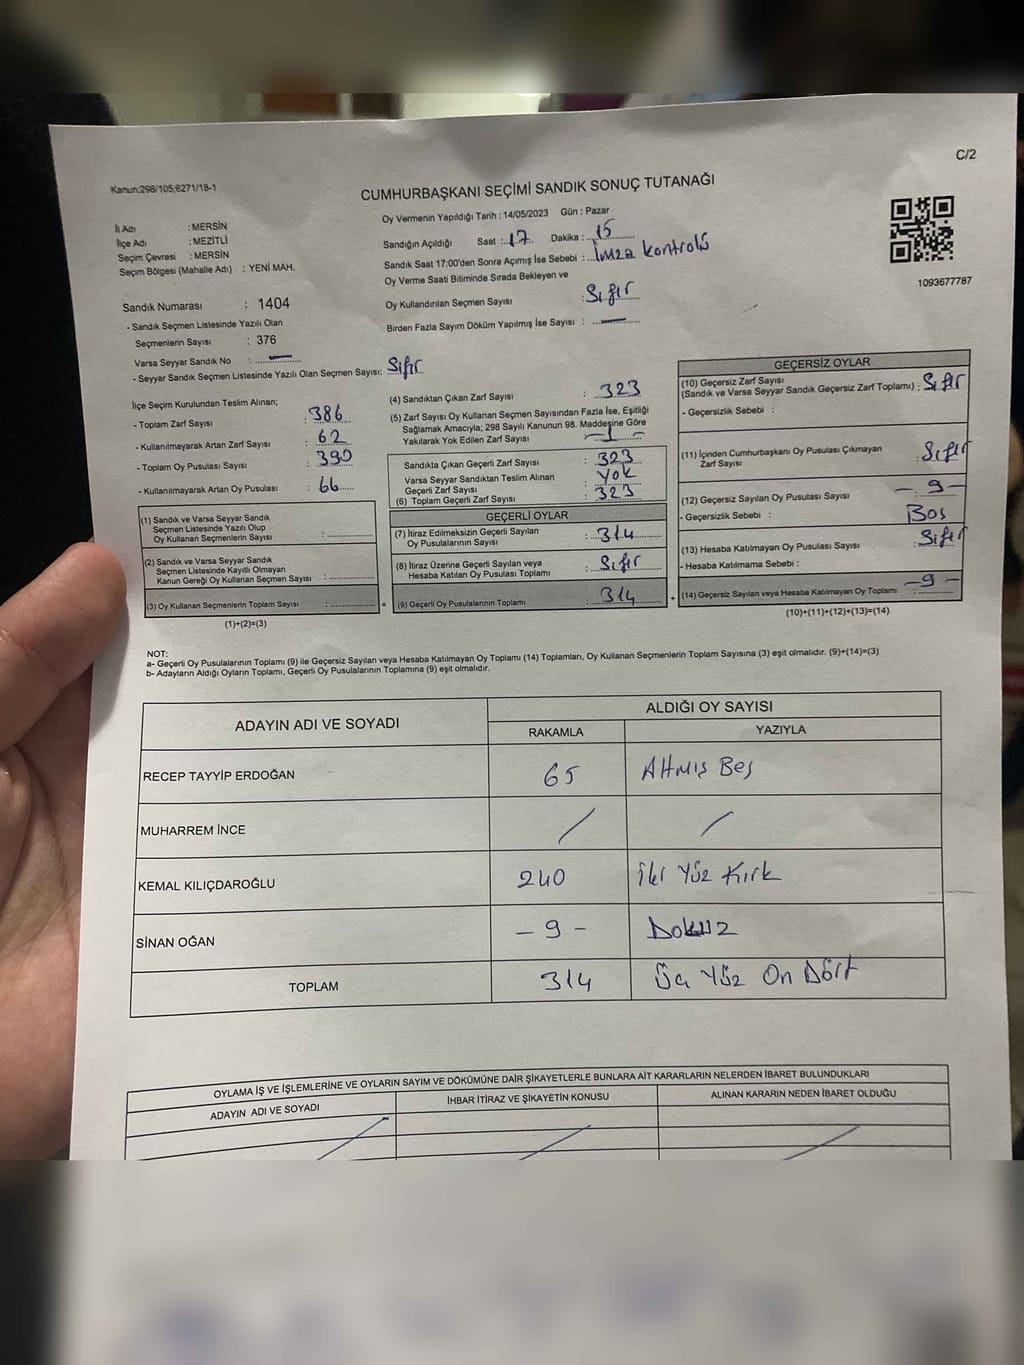 C/2
Kanun;298/105;6271/18-1
CUMHURBAŞKANI SEÇİMİ SANDIK SONUÇ TUTANAĞI
İl Adı : MERSİN
İlçe Adı : MEZİTLİ
Seçim Çevresi : MERSİN
Seçim Bölgesi (Mahalle Adı) : YENİ MAH.
Oy Vermenin Yapıldığı Tarih : 14/05/2023 Gün : Pazar
Sandığın Açıldığı Saat : 17 Dakika : 15
Sandık Saat 17:00'den Sonra Açımış İse Sebebi : İmza kontrolü
Oy Verme Saati Bitiminde Sırada Bekleyen ve
Oy Kullandırılan Seçmen Sayısı : Sıfır
Birden Fazla Sayım Döküm Yapılmış İse Sayısı : —
1093677787
Sandık Numarası : 1404
- Sandık Seçmen Listesinde Yazılı Olan
Seçmenlerin Sayısı : 376
Varsa Seyyar Sandık No : —
- Seyyar Sandık Seçmen Listesinde Yazılı Olan Seçmen Sayısı: Sıfır
İlçe Seçim Kurulundan Teslim Alınan;
- Toplam Zarf Sayısı : 386
- Kullanılmayarak Artan Zarf Sayısı : 62
- Toplam Oy Pusulası Sayısı : 390
- Kullanılmayarak Artan Oy Pusulası : 66
(1) Sandık ve Varsa Seyyar Sandık
Seçmen Listesinde Yazılı Olup
Oy Kullanan Seçmenlerin Sayısı :
(2) Sandık ve Varsa Seyyar Sandık
Seçmen Listesinde Kayıtlı Olmayan
Kanun Gereği Oy Kullanan Seçmen Sayısı :
(3) Oy Kullanan Seçmenlerin Toplam Sayısı : =
(1)+(2)=(3)
(4) Sandıktan Çıkan Zarf Sayısı : 323
(5) Zarf Sayısı Oy Kullanan Seçmen Sayısından Fazla İse, Eşitliği
Sağlamak Amacıyla; 298 Sayılı Kanunun 98. Maddesine Göre
Yakılarak Yok Edilen Zarf Sayısı : — 1 —
Sandıkta Çıkan Geçerli Zarf Sayısı : 323
Varsa Seyyar Sandıktan Teslim Alınan
Geçerli Zarf Sayısı : Yok
(6) Toplam Geçerli Zarf Sayısı : 323
GEÇERLİ OYLAR
(7) İtiraz Edilmeksizin Geçerli Sayılan
Oy Pusulalarının Sayısı : 314
(8) İtiraz Üzerine Geçerli Sayılan veya
Hesaba Katılan Oy Pusulası Toplamı : Sıfır
(9) Geçerli Oy Pusulalarının Toplamı : 314 +
GEÇERSİZ OYLAR
(10) Geçersiz Zarf Sayısı
(Sandık ve Varsa Seyyar Sandık Geçersiz Zarf Toplamı) : Sıfır
- Geçersizlik Sebebi :
(11) İçinden Cumhurbaşkanı Oy Pusulası Çıkmayan
Zarf Sayısı : Sıfır
(12) Geçersiz Sayılan Oy Pusulası Sayısı : — 9 —
- Geçersizlik Sebebi : Boş
(13) Hesaba Katılmayan Oy Pusulası Sayısı : Sıfır
- Hesaba Katılmama Sebebi :
(14) Geçersiz Sayılan veya Hesaba Katılmayan Oy Toplamı : — 9 —
(10)+(11)+(12)+(13)=(14)
NOT:
a- Geçerli Oy Pusulalarının Toplamı (9) ile Geçersiz Sayılan veya Hesaba Katılmayan Oy Toplamı (14) Toplamları, Oy Kullanan Seçmenlerin Toplam Sayısına (3) eşit olmalıdır. (9)+(14)=(3)
b- Adayların Aldığı Oyların Toplamı, Geçerli Oy Pusulalarının Toplamına (9) eşit olmalıdır.
ADAYIN ADI VE SOYADI
ALDIĞI OY SAYISI
RAKAMLA YAZIYLA
RECEP TAYYİP ERDOĞAN 65 Altmış Beş
MUHARREM İNCE / /
KEMAL KILIÇDAROĞLU 240 İki Yüz Kırk
SİNAN OĞAN — 9 — Dokuz
TOPLAM 314 Üç Yüz On Dört
OYLAMA İŞ VE İŞLEMLERİNE VE OYLARIN SAYIM VE DÖKÜMÜNE DAİR ŞİKAYETLERLE BUNLARA AİT KARARLARIN NELERDEN İBARET BULUNDUKLARI
ADAYIN ADI VE SOYADI İHBAR İTİRAZ VE ŞİKAYETİN KONUSU ALINAN KARARIN NEDEN İBARET OLDUĞU